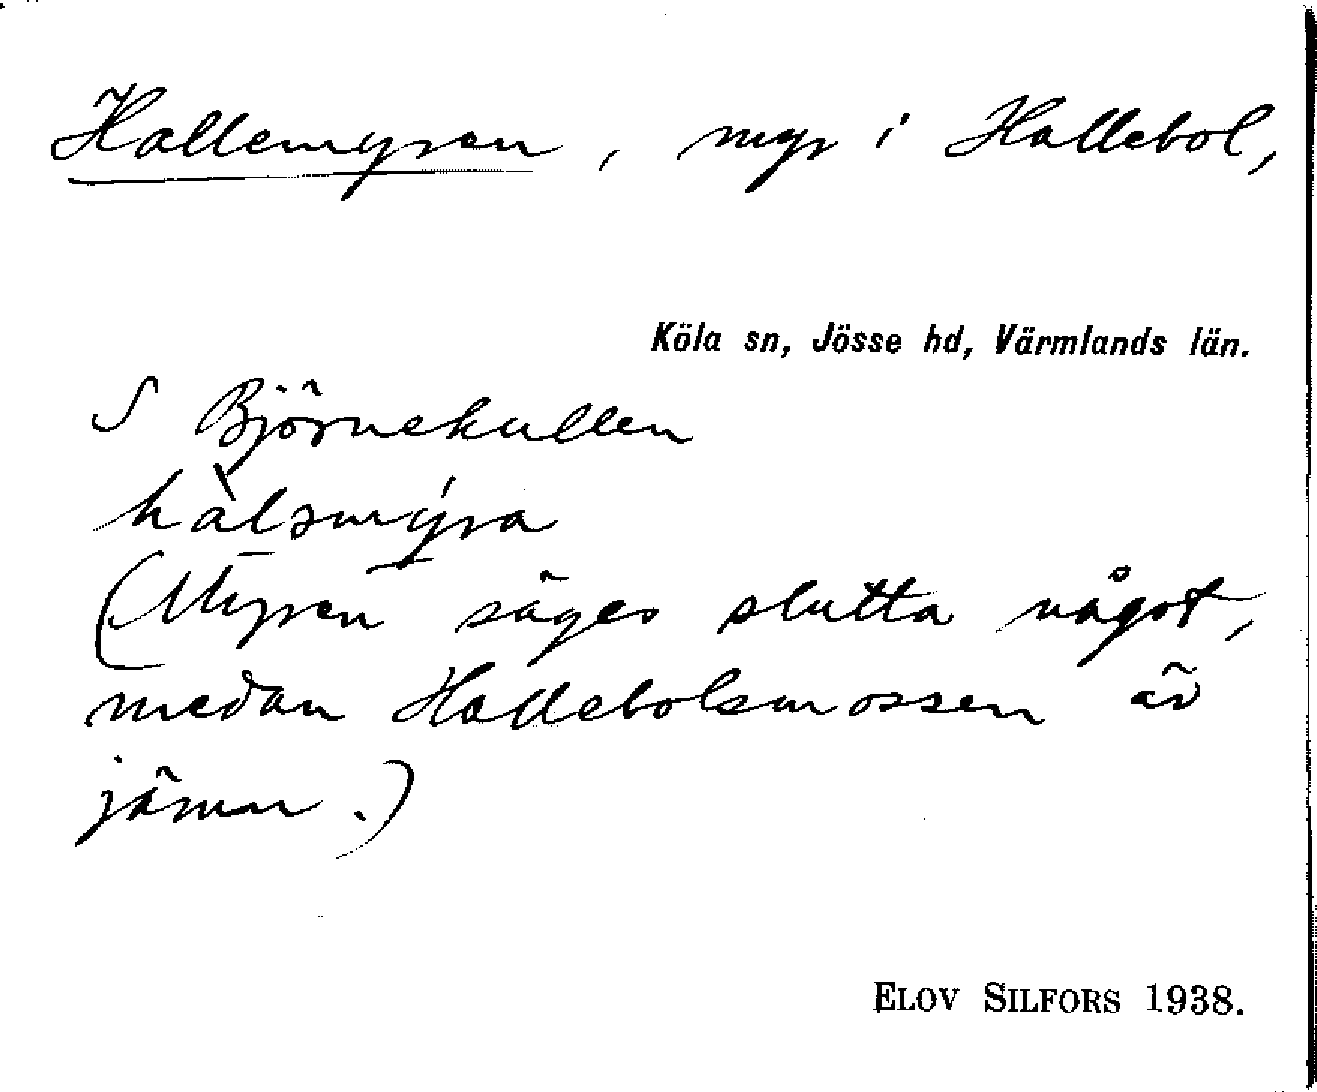 Hallemyren, myr i Hallebol,
Köla sn, Jösse hd, Värmlands län.
S Björnekullen
hàlsmýra
(Myren säges slutta något,
medan Hallebolsmossen är
jämn.)
ELOV SILFORS 1938.